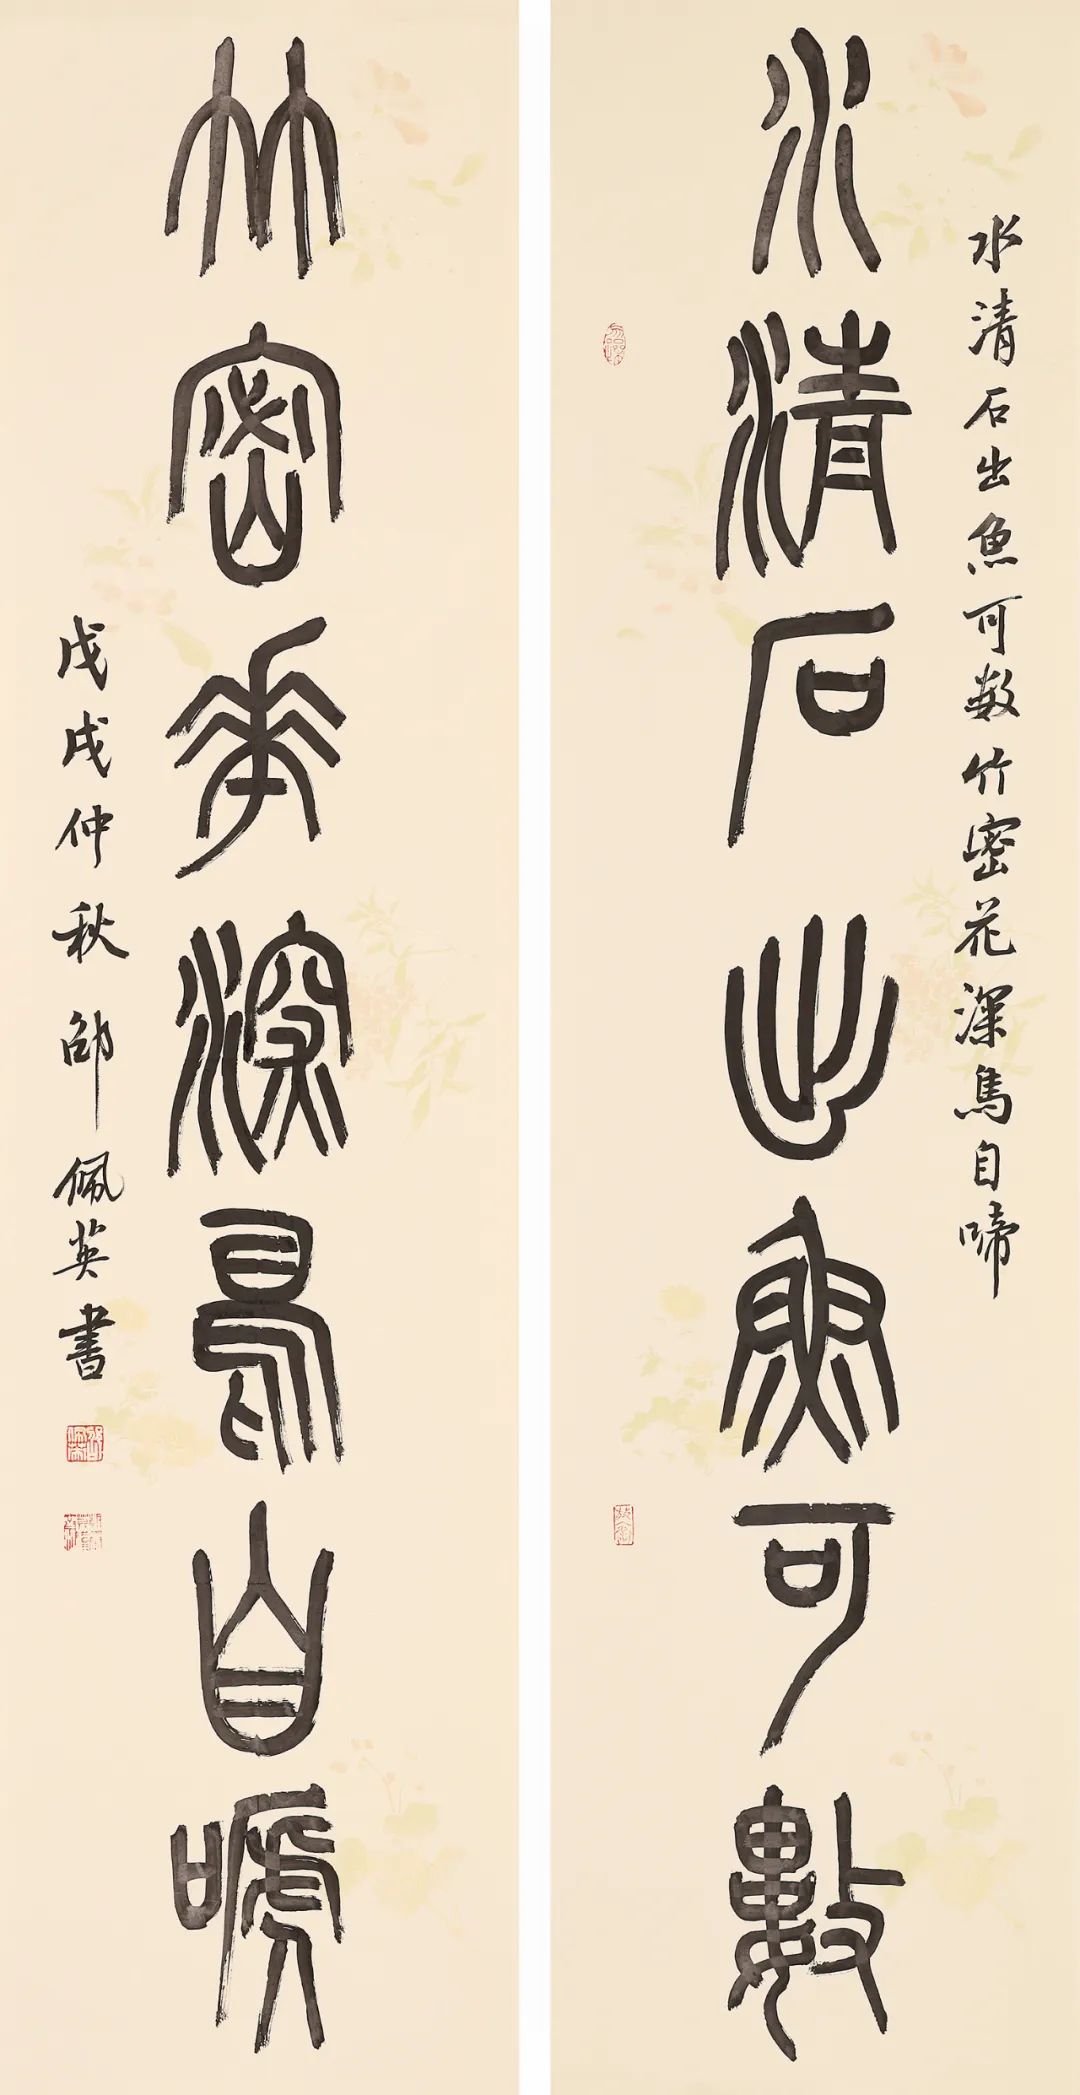 水清石出魚可數
水清石出魚可数竹密花深鳥自啼
竹密華深鳥自嗁
戊戌仲秋邵佩英書